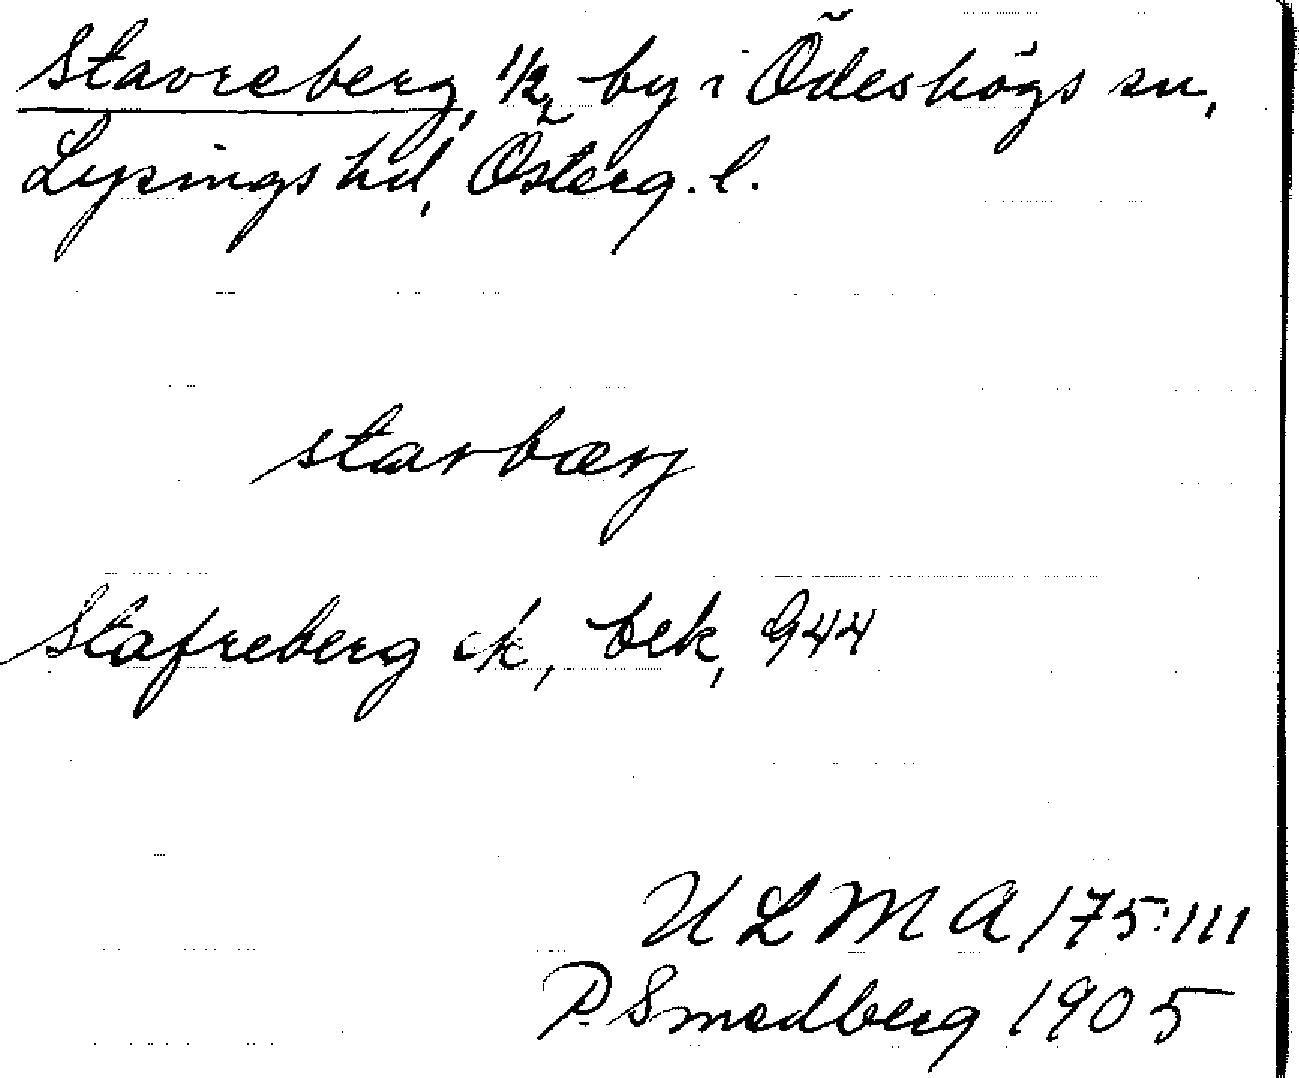 Stavreberg, 1/2 by i Ödeshögs sn,
Lysings hd, Österg. l.
starbærj
Stafreberg ek, bek, 944
ULMA 175:111
P. Smedberg 1905